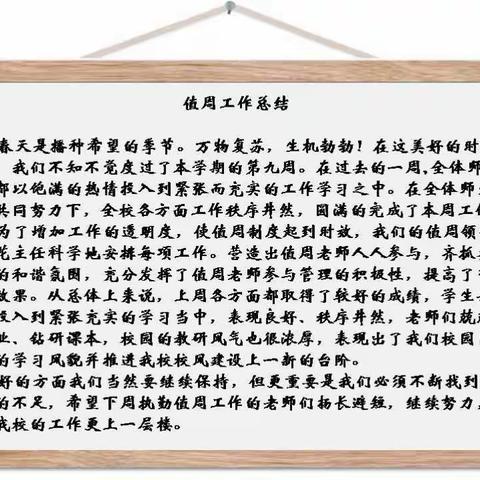 值周工作总结
春天是播种希望的季节。万物复苏，生机勃勃！在这美好的时
，我们不知不觉度过了本学期的第九周。在过去的一周,全体师
都以饱满的热情投入到紧张而充实的工作学习之中。在全体师
共同努力下，全校各方面工作秩序井然，圆满的完成了本周工作
为了增加工作的透明度，使值周制度起到时效，我们的值周领
花主任科学地安排每项工作。营造出值周老师人人参与，齐抓
的和谐氛围，充分发挥了值周老师参与管理的积极性，提高了
效果。从总体上来说，上周各方面都取得了较好的成绩，学生
投入到紧张充实的学习当中，表现良好、秩序井然，老师们兢
业、钻研课本，校园的教研风气也很浓厚，表现出了我们校园
的学习风貌并推进我校校风建设上一新的台阶。
好的方面我们当然要继续保持，但更重要是我们必须不断找到
的不足，希望下周执勤值周工作的老师们扬长避短，继续努力，
我校的工作更上一层楼。